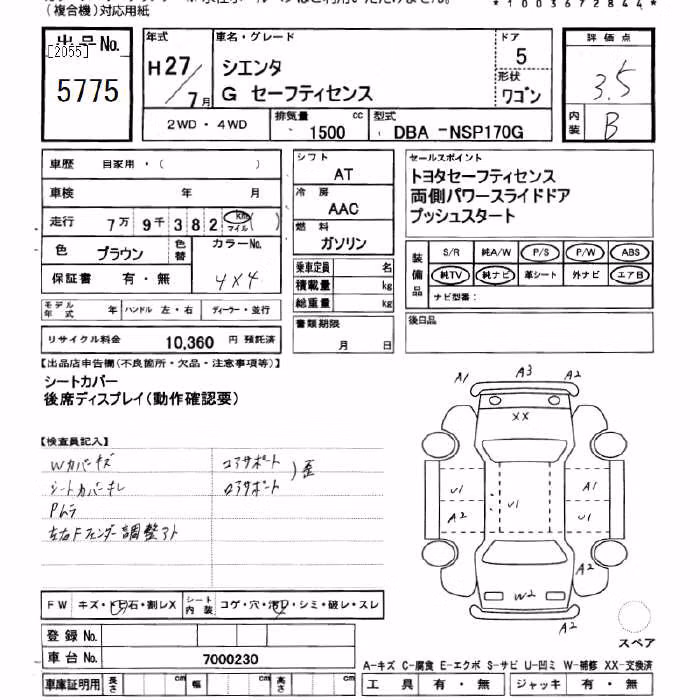 (複合機)対応用紙
*1003672844*
出品No.
[2055]
5775
年式
H27/7月
車名・グレード
シエンタ
G セーフティセンス
ドア
5
形状
ワゴン
評価点
3.5
内装
B
2WD・4WD
排気量
1500 cc
型式
DBA -NSP170G
車歴 自家用・( )
車検 年 月
走行 7万 9千 3 8 2 km マイル ( )
色 ブラウン
色替
カラーNo.
4X4
保証書 有・無
モデル年式 年
ハンドル 左・右
ディーラー・並行
リサイクル料金 10,360 円 預託済
シフト
AT
冷房
AAC
燃料
ガソリン
乗車定員 名
積載量 kg
総重量 kg
書類期限
月 日
セールスポイント
トヨタセーフティセンス
両側パワースライドドア
プッシュスタート
装備品
S/R 純A/W P/S P/W ABS
純TV 純ナビ 革シート 外ナビ エアB
ナビ型番:
後日品
【出品店申告欄(不良箇所・欠品・注意事項等)】
シートカバー
後席ディスプレイ(動作確認要)
【検査員記入】
Wカバーキズ
コアサポート
シートカバーキレ
ロアサポート
)歪
Pムラ
左右Fフェンダー調整アト
A1 A3 A2
XX
U1 U1 A1
A2 U1
A2
W2
A2
スペア
FW キズ・ト石・割レX
シート内装 コゲ・穴・汚レ・シミ・破レ・スレ
登録No.
車台No. 7000230
車庫証明用 長さ cm 幅 cm 高さ cm
A-キズ C-腐食 E-エクボ S-サビ U-凹ミ W-補修 XX-交換済
工具 有・無 ジャッキ 有・無